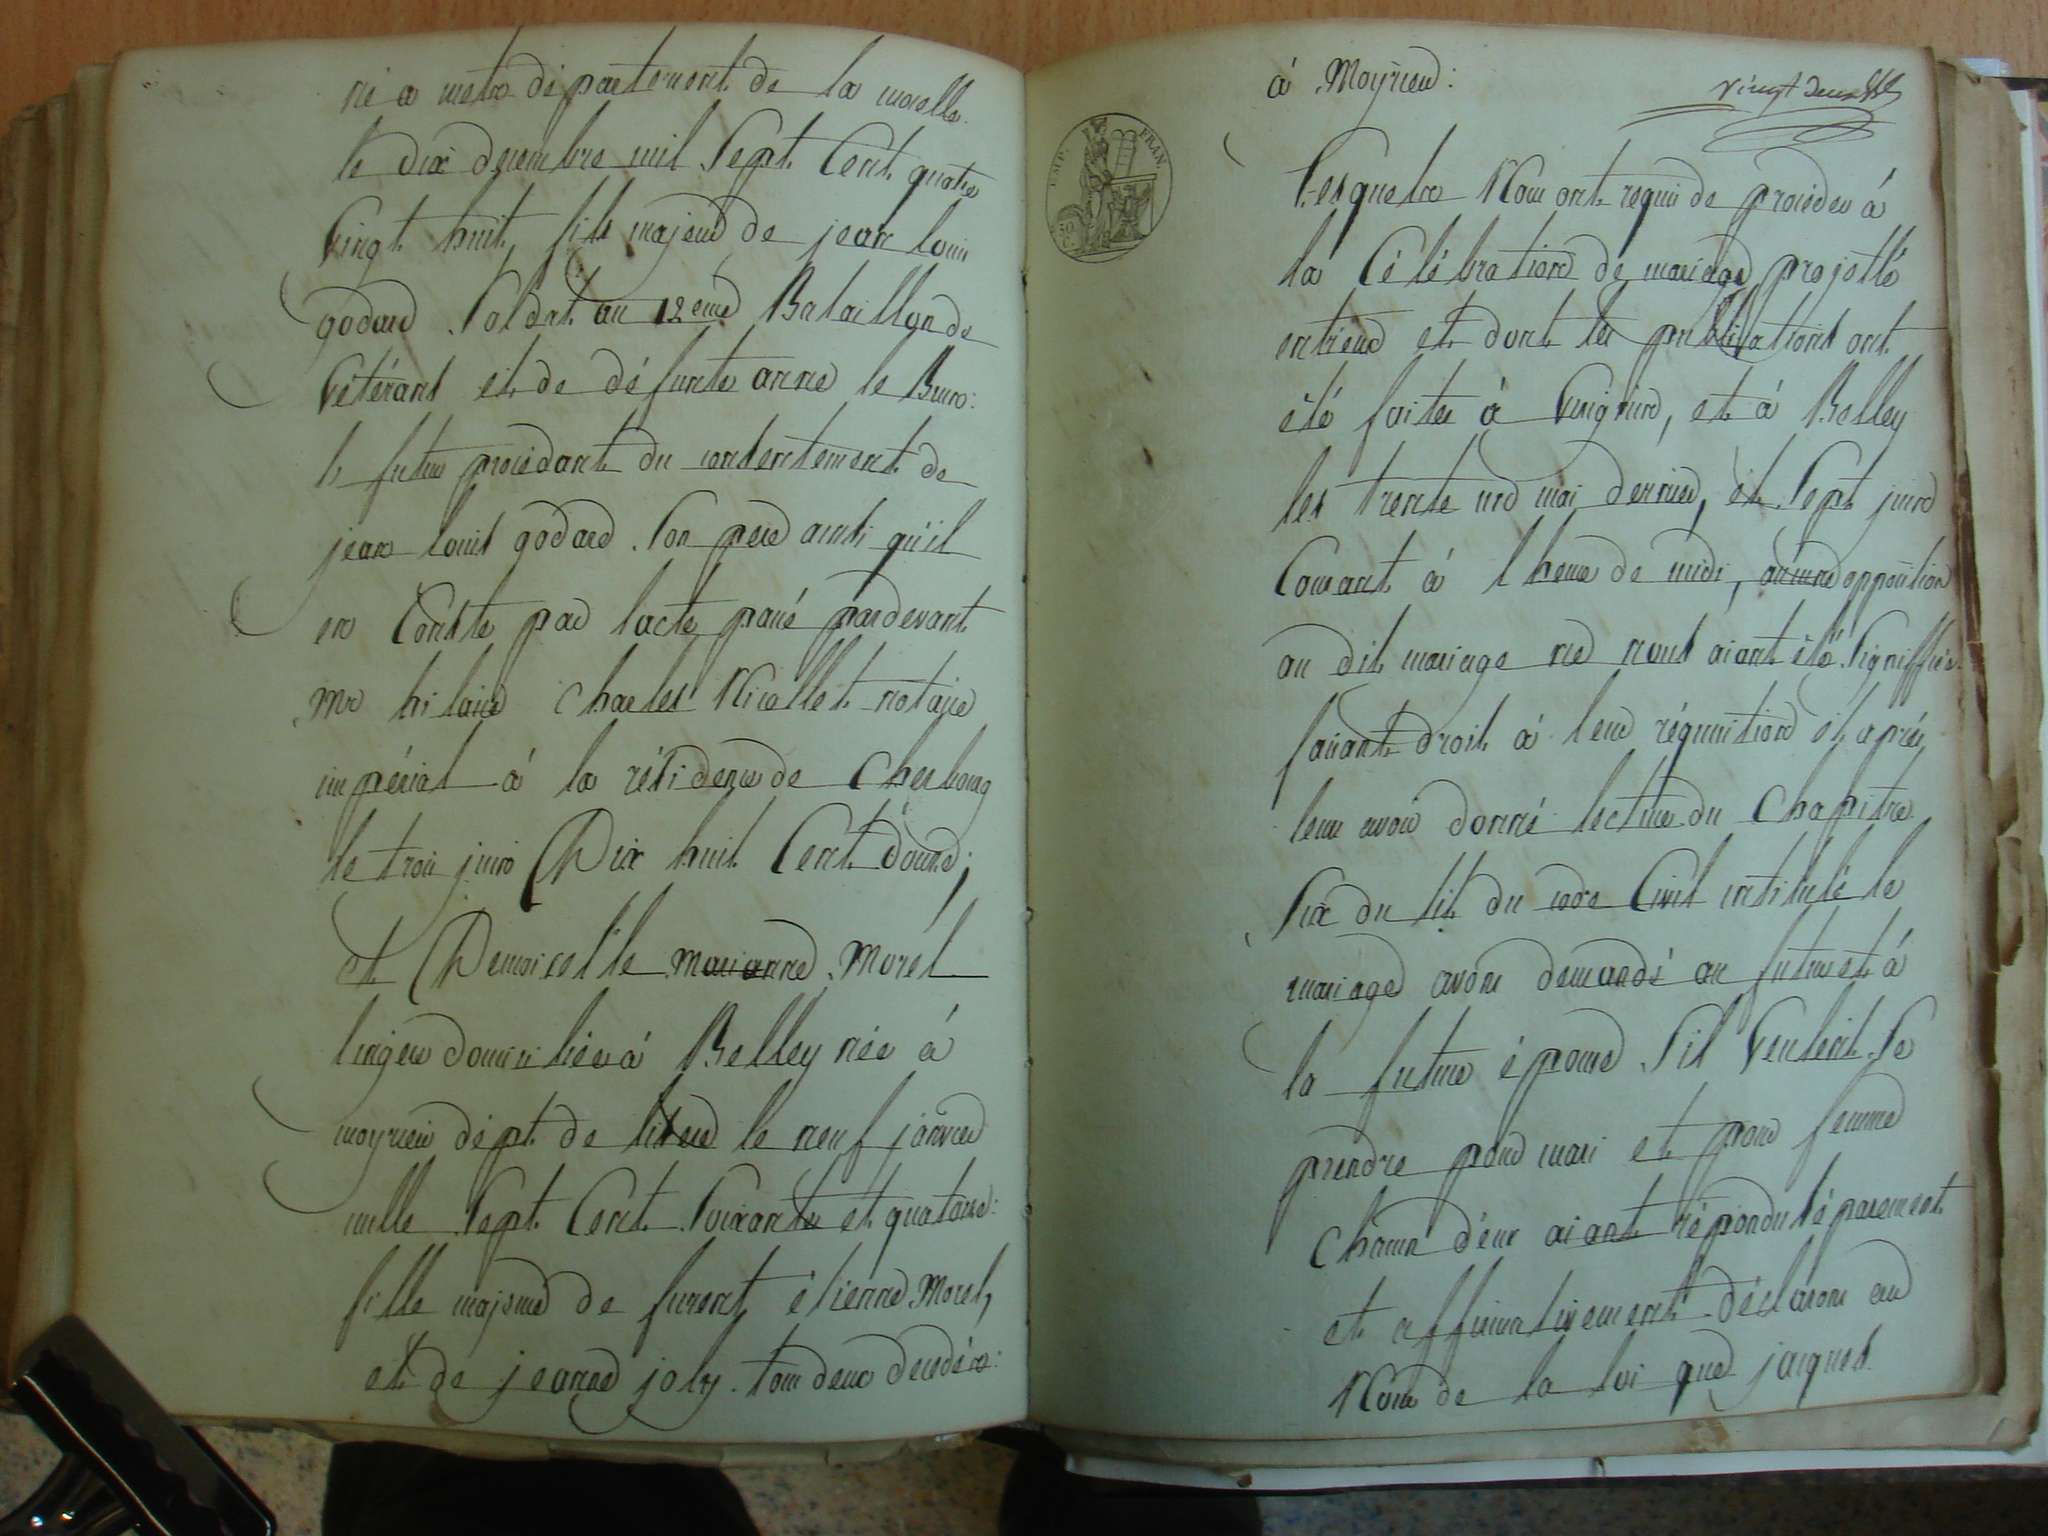 né a metz département de la moselle
le dix decembre mil Sept Cent quatre
Vingt huit, fils majeur de jean louis
godard Soldat au 12ème Bataillon de
Vétérans et de défunte anne le Brun:
le futur procédant du consentement de
jean louis godard Son père ainsi qu'il
en Conste par lacte passé pardevant
Mr hilaire Charles Nicollet notaire
impérial à la résidence de Cherbourg
le trois juin Dix huit Cent douze;
et Demoiselle marianne Morel
lingere domiciliée à Belley née à
moyrieu dépt. de lisere le neuf janvier
mille Sept Cent Soixante et quatorze:
fille majeure de furent étienne Morel,
et de jeanne joly tous deux decedés:
à Moyrieu:
vingt deux
EMP. FRAN.
50 C.
Lesquels Nous ont requis de procéder à
la Célébration de mariage projetté
entreux et dont les publications ont
été faites à Virignin, et à Belley
les trente un mai dernier, et Sept juin
Courant à l heure de midi, aucune opposition
au dit mariage ne nous aiant été Signiffiée
faisant droit à leur réquisition et après
leur avoir donné lecture du Chapitre
Six du tit. du code Civil intitulé le
mariage avons demandé au futur et à
la future épouse S'il Veulent Se
prendre pour mari et pour femme
Chacun d'eux aiant répondu Séparement
et affirmativement déclarons au
Nom de la loi que jacques